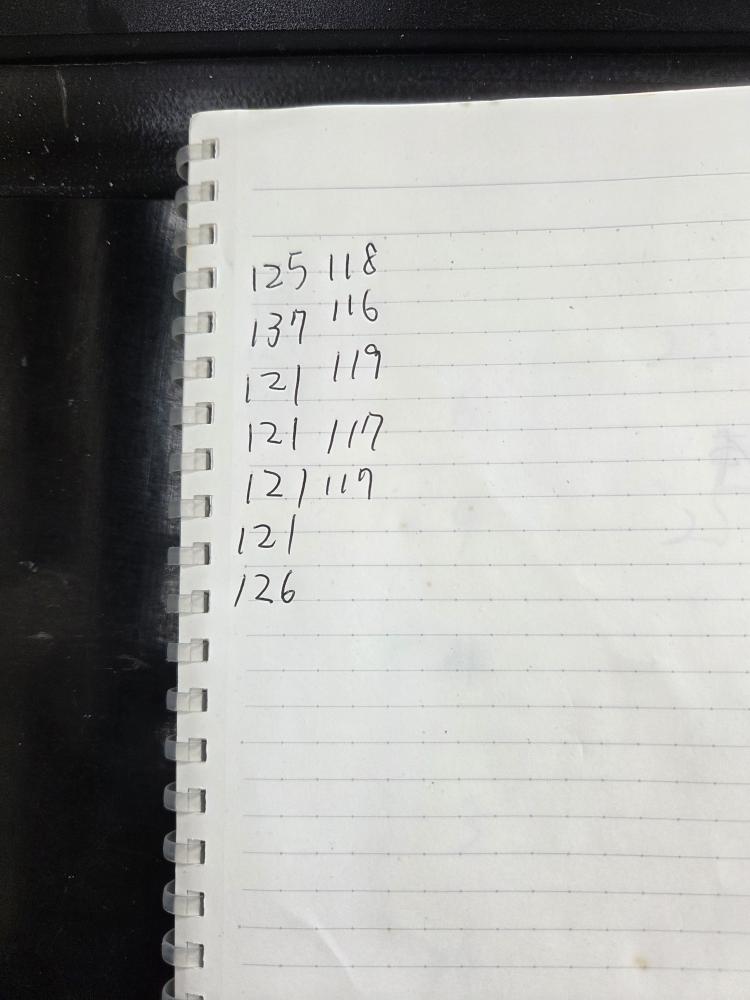 125 118
137 116
121 119
121 117
121 119
121
126